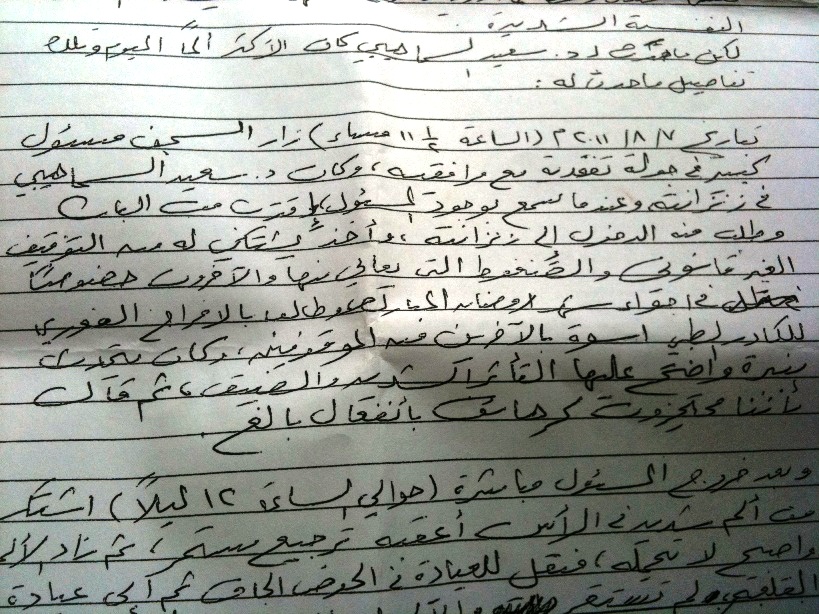 النفسية الشديدة
لكن ما حدث لـ د. سعيد السماهيجي كان الأكثر ألماً اليوم وتلك
تفاصيل ما حدث له :
بتاريخ ٧ / ٨ / ٢٠١١ م (الساعة ١١ ١/٢ مساء) زار السجن مسئول
كبير في جولة تفقدية مع مرافقيه، وكان د. سعيد السماهيجي
في زنزانته وعندما سمع بوجود المسئول اقترب من الباب
وطلب منه الدخول إلى زنزانته، وأخذ يشتكي له من التوقيف
الغير قانوني والضغوط التي يعاني منها والآخرون خصوصاً
في أجواء شهر رمضان المبارك وطالب بالافراج الفوري
للكادر الطبي اسوة بالآخرين من الموقوفين، وكان يتحدث
بنبرة واضح عليها التأثر الشديد والضيق، ثم قال
بأننا محتجزون كرهائن بانفعال بالغ.
وبعد خروج المسئول مباشرة (حوالي الساعة ١٢ ليلاً) اشتكى
من ألم شديد في الرأس أعقبه ترجيع مستمر، ثم زاد الألم
واصبح لا تحمله، فنقل للعيادة في الحوض الجاف ثم إلى عيادة
القلعة، ولم تستقر